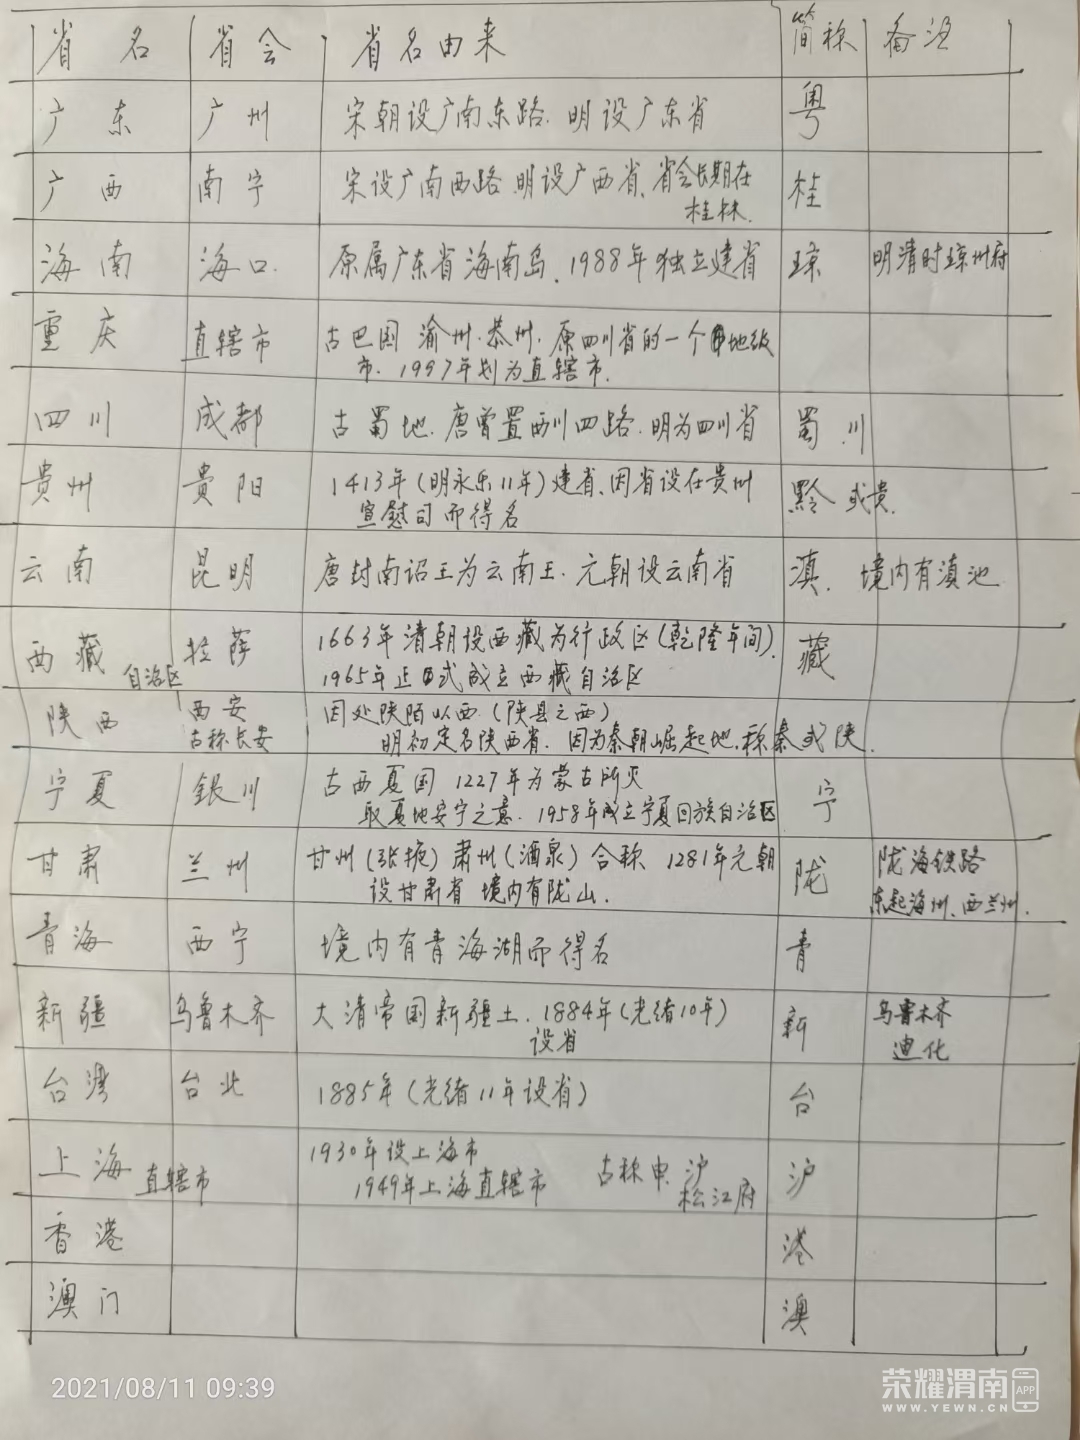 省名 省会 省名由来 简称 备注
广东 广州 宋朝设广南东路.明设广东省 粤
广西 南宁 宋设广南西路 明设广西省、省会长期在 桂
桂林.
海南 海口. 原属广东省海南岛.1988年独立建省 琼 明清时琼州府
重庆 直辖市 古巴国 渝州.恭州.原四川省的一个地级
市.1997年划为直辖市.
四川 成都 古蜀地.唐曾置西川四路.明为四川省 蜀.川
贵州 贵阳 1413年(明永乐11年)建省、因省设在贵州 黔 或贵.
宣慰司而得名
云南 昆明 唐封南诏王为云南王.元朝设云南省 滇. 境内有滇池
西藏 自治区 拉萨 1663年清朝设西藏为行政区(乾隆年间). 藏
1965年正式成立西藏自治区
陕西 西安 因处陕陌以西.(陕县之西)
古称长安 明初定名陕西省.因为秦朝崛起地.称秦或陕.
宁夏 银川 古西夏国 1227年为蒙古所灭 宁
取夏地安宁之意.1958年成立宁夏回族自治区
甘肃 兰州 甘州(张掖)肃州(酒泉)合称 1281年元朝 陇 陇海铁路
设甘肃省 境内有陇山. 东起海州、西兰州.
青海 西宁 境内有青海湖而得名 青
新疆 乌鲁木齐 大清帝国新疆土.1884年(光绪10年) 新 乌鲁木齐
设省 迪化
台湾 台北 1885年(光绪11年设省) 台
上海 直辖市 1930年设上海市 古称申.沪 沪
1949年上海直辖市 松江府
香港 港
澳门 澳
2021/08/11 09:39
荣耀渭南 APP
WWW.YEWN.CN